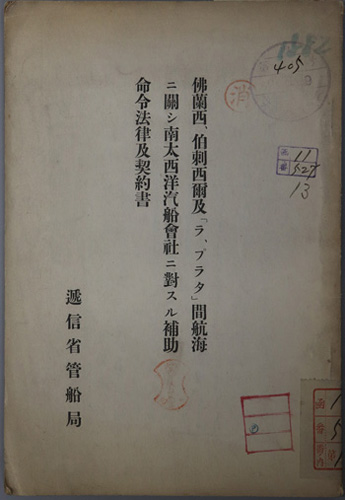 佛蘭西、伯剌西爾及「ラ、プラタ」間航海
ニ關シ南太西洋汽船會社ニ對スル補助
命令法律及契約書
遞信省管船局
消
405
11
527
13